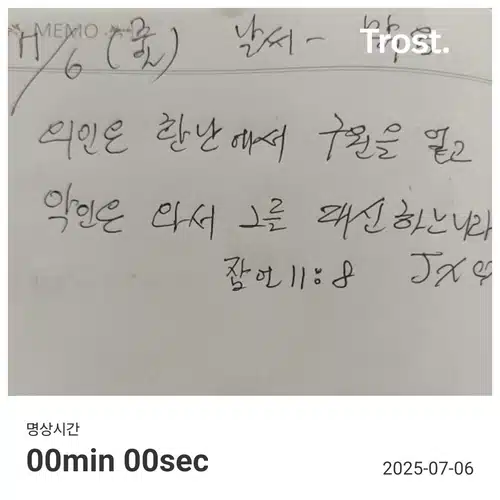 MEMO
Trost.
/6 (주일) 날씨 - 맑음
의인은 환난에서 구원을 얻고
악인은 와서 그를 대신하느니라
잠언 11:8
명상시간
00min 00sec
2025-07-06